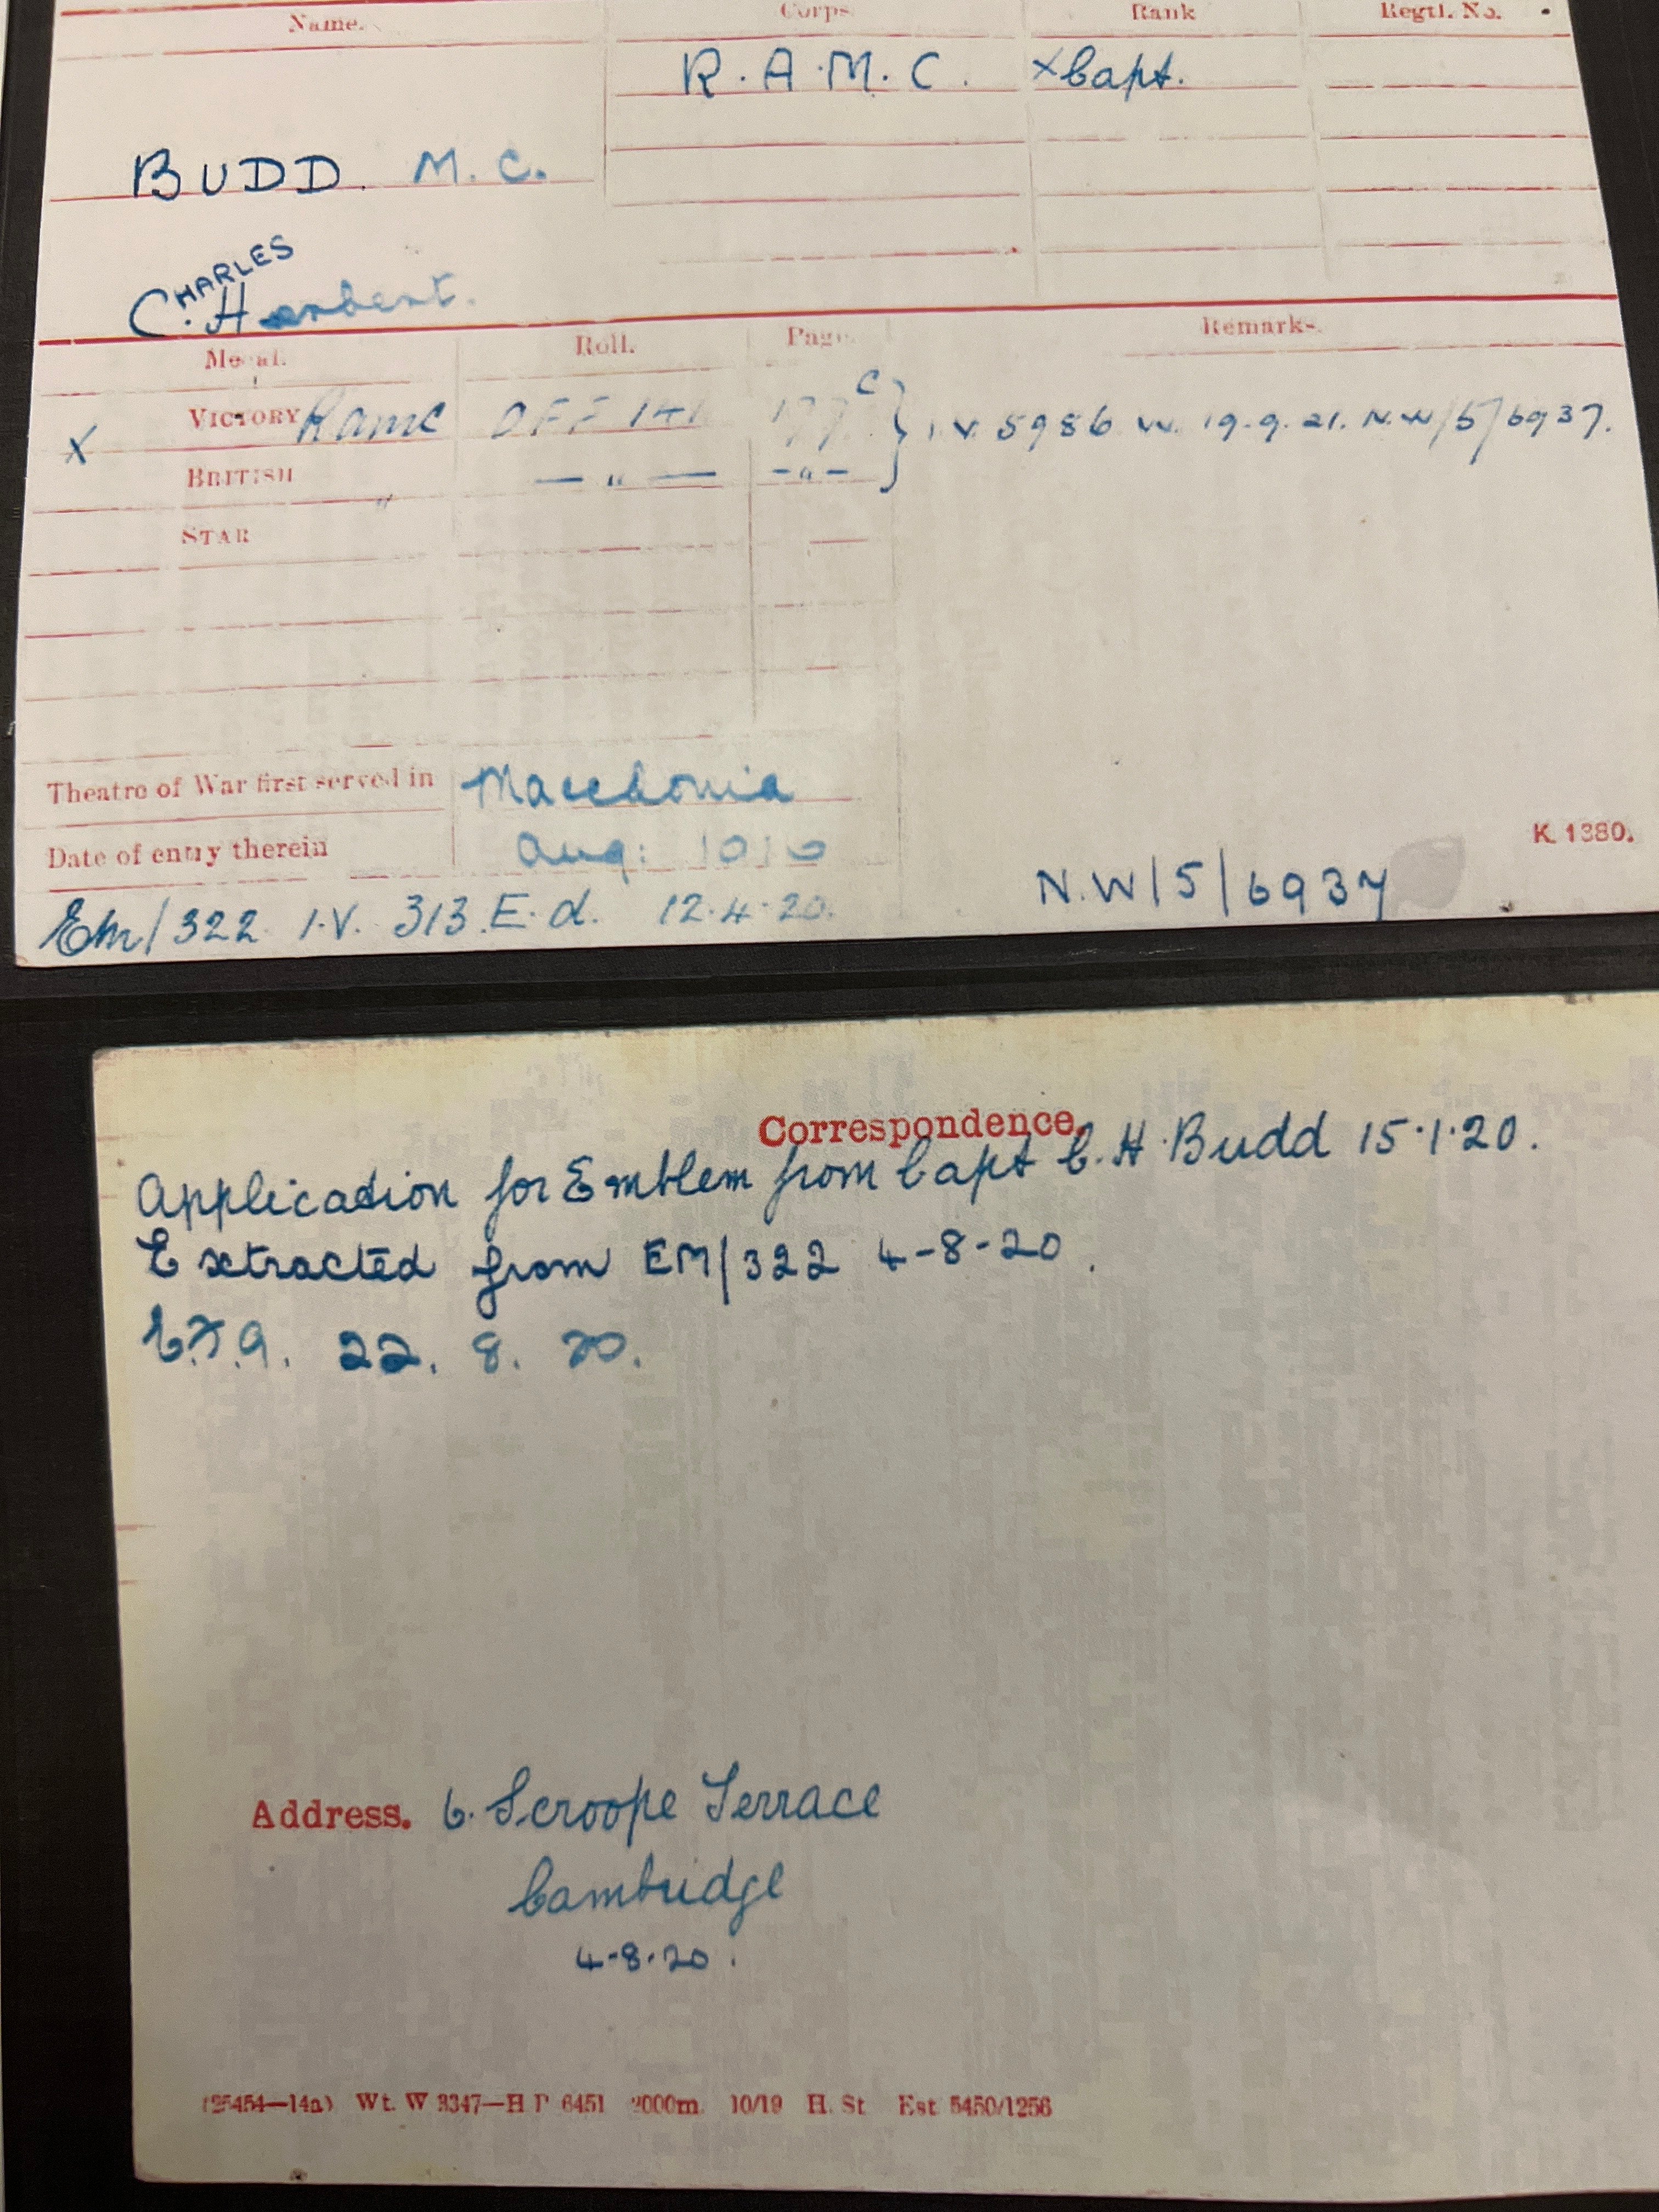 Name. Corps Rank Regtl. No.
R.A.M.C. xCapt.
BUDD. M.C.
CHARLES
C. Herbert.
Medal. Roll. Page Remarks.
X VICTORY Ramc OFF 141 177 C } I.V. 5986 W. 19.9.21. N.W/5/6937.
BRITISH " — " — - " -
STAR
Theatre of War first served in Macedonia
Date of entry therein Aug: 1916
K. 1380.
N.W/5/6937
Em/322 I.V. 313.E.d. 12.4.20.
Correspondence.
Application for Emblem from Capt C.H. Budd 15.1.20.
Extracted from EM/322 4-8-20.
22. 8. 20.
Address. 6. Scroope Terrace
Cambridge
4-8-20.
(25454—14a) Wt. W 3347—H P 6451 2000m. 10/19 H. St Est 5450/1256